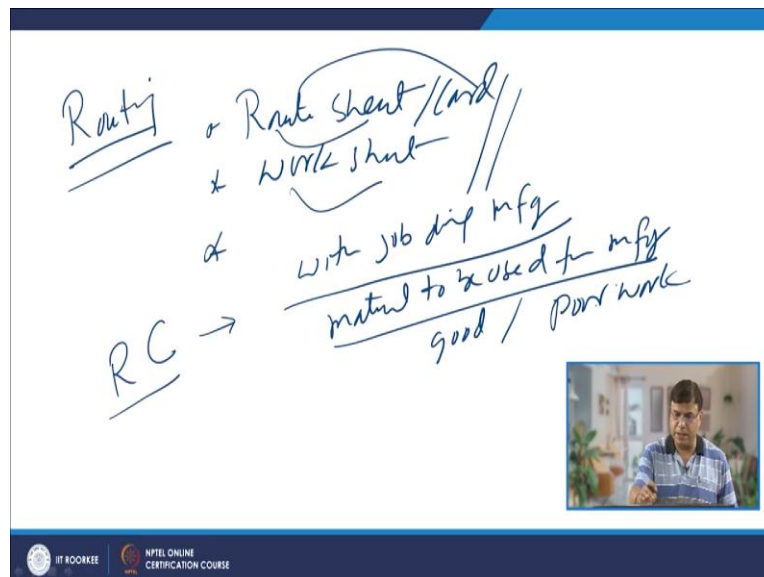 Routing
Route Sheet/Card
Work Sheet
with job during mfg
RC → material to be used for mfg
good / poor work
IIT ROORKEE
NPTEL ONLINE
CERTIFICATION COURSE